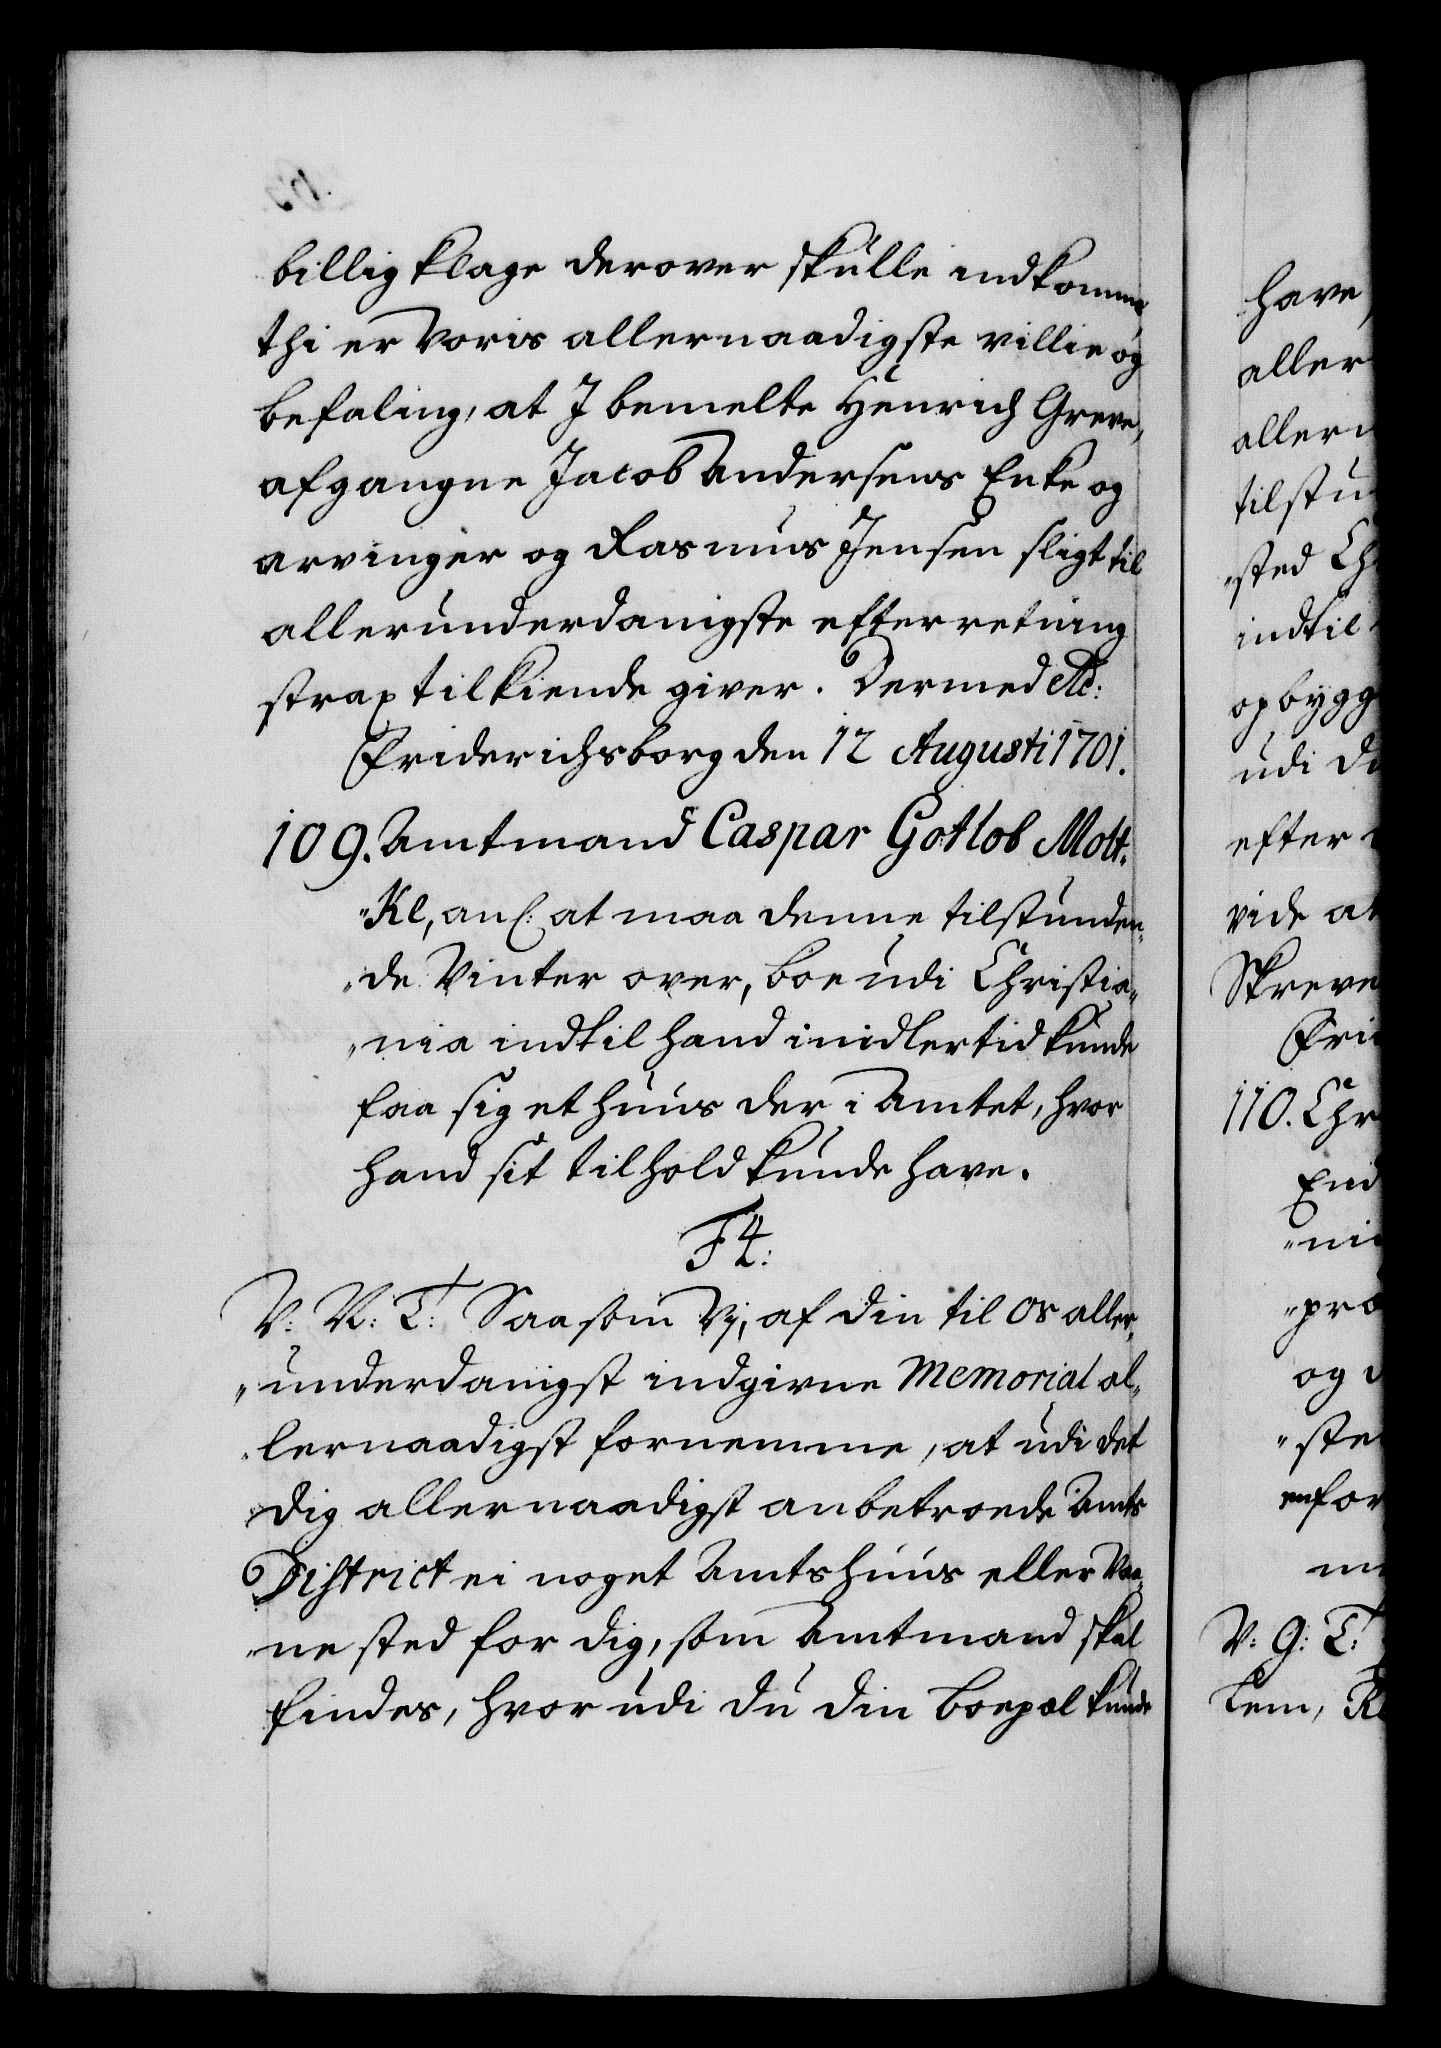 billig klage derover skulle indkomme
thi er Voris allernaadigste villie og
befaling, at I bemelte Henrich Greve,
afgangne Jacob Andersens Enke og
arvinger og Rasmus Jensen sligt til
allerunderdanigste efterretning
strax tilkiende giver. Dermed etc:
Friderichsborg den 12 Augusti 1701.
109. Amtmand Caspar Gotlob Molt-
"Kl, anl: at maa denne tilstunden-
"de Vinter over, boe udi Christia-
"nia indtil hand imidlertid kunde
faa sig et huus der i Amtet, hvor
hand sit tilhold kunde have.
F 4:
V: V: T: Saasom Vi, af din til Os aller-
"underdanigst indgivne Memorial al-
"lernaadigst fornemme, at udi det
dig allernaadigst anbetroede Amts
District ei noget Amtshuus eller Vaa-
"ne sted for dig, som Amtmand skal
findes, hvorudi du din boepæl kunde
have,
aller
allern
tilstu
"sted Ch
indtil
opbygg
udi d
efter
vide at
Skreve
Frid
110. Chr
End
"ni
"pro
og
"ste
enfor
V: G: T:
Lem, R